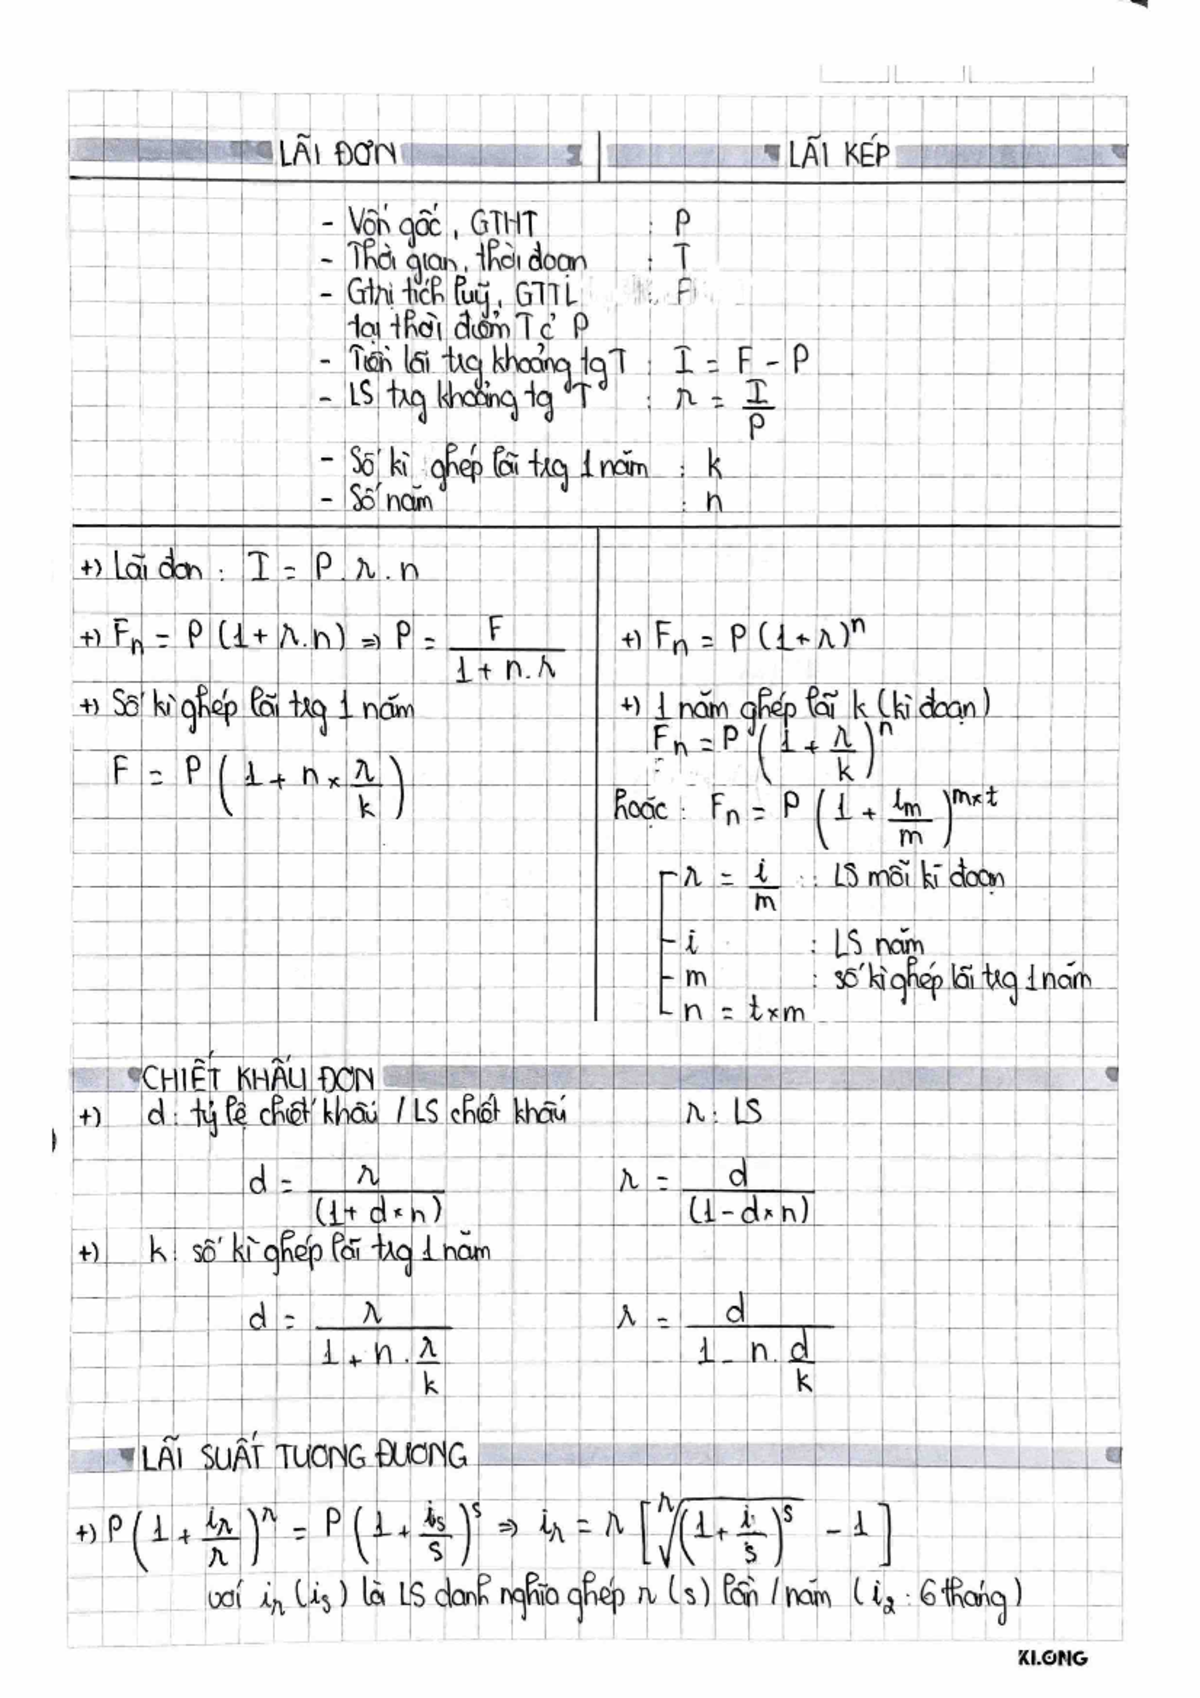 LÃI ĐƠN | LÃI KÉP
- Vốn gốc, GTHT : P
- Thời gian, thời đoạn : T
- Gtrị tích luỹ, GTTL : F
tại thời điểm T c̉ P
- Tiền lãi trg khoảng tg T : I = F - P
- LS trg khoảng tg T : r = I/P
- Số kì ghép lãi trg 1 năm : k
- Số năm : n
+) Lãi đơn : I = P. r. n
+) Fn = P (1 + r.n) => P = F/(1 + n.r)
+) Số kì ghép lãi trg 1 năm
F = P (1 + n × r/k)
+) Fn = P (1 + r)^n
+) 1 năm ghép lãi k (kì đoạn)
Fn = P (1 + r/k)^n
hoặc : Fn = P (1 + im/m)^(m×t)
r = i/m : LS mỗi kì đoạn
i : LS năm
m : số kì ghép lãi trg 1 năm
n = t×m
CHIẾT KHẤU ĐƠN
+) d : tỷ lệ chiết khấu / LS chiết khấu r : LS
d = r/(1 + d×n) r = d/(1 - d×n)
+) k : số kì ghép lãi trg 1 năm
d = r/(1 + n . r/k) r = d/(1 - n. d/k)
LÃI SUẤT TƯƠNG ĐƯƠNG
+) P (1 + ir/r)^r = P (1 + is/s)^s => ir = r [ʳ√(1 + i/s)^s - 1]
với ir (is) là LS danh nghĩa ghép r (s) lần / năm (i2 : 6 tháng)
KLONG